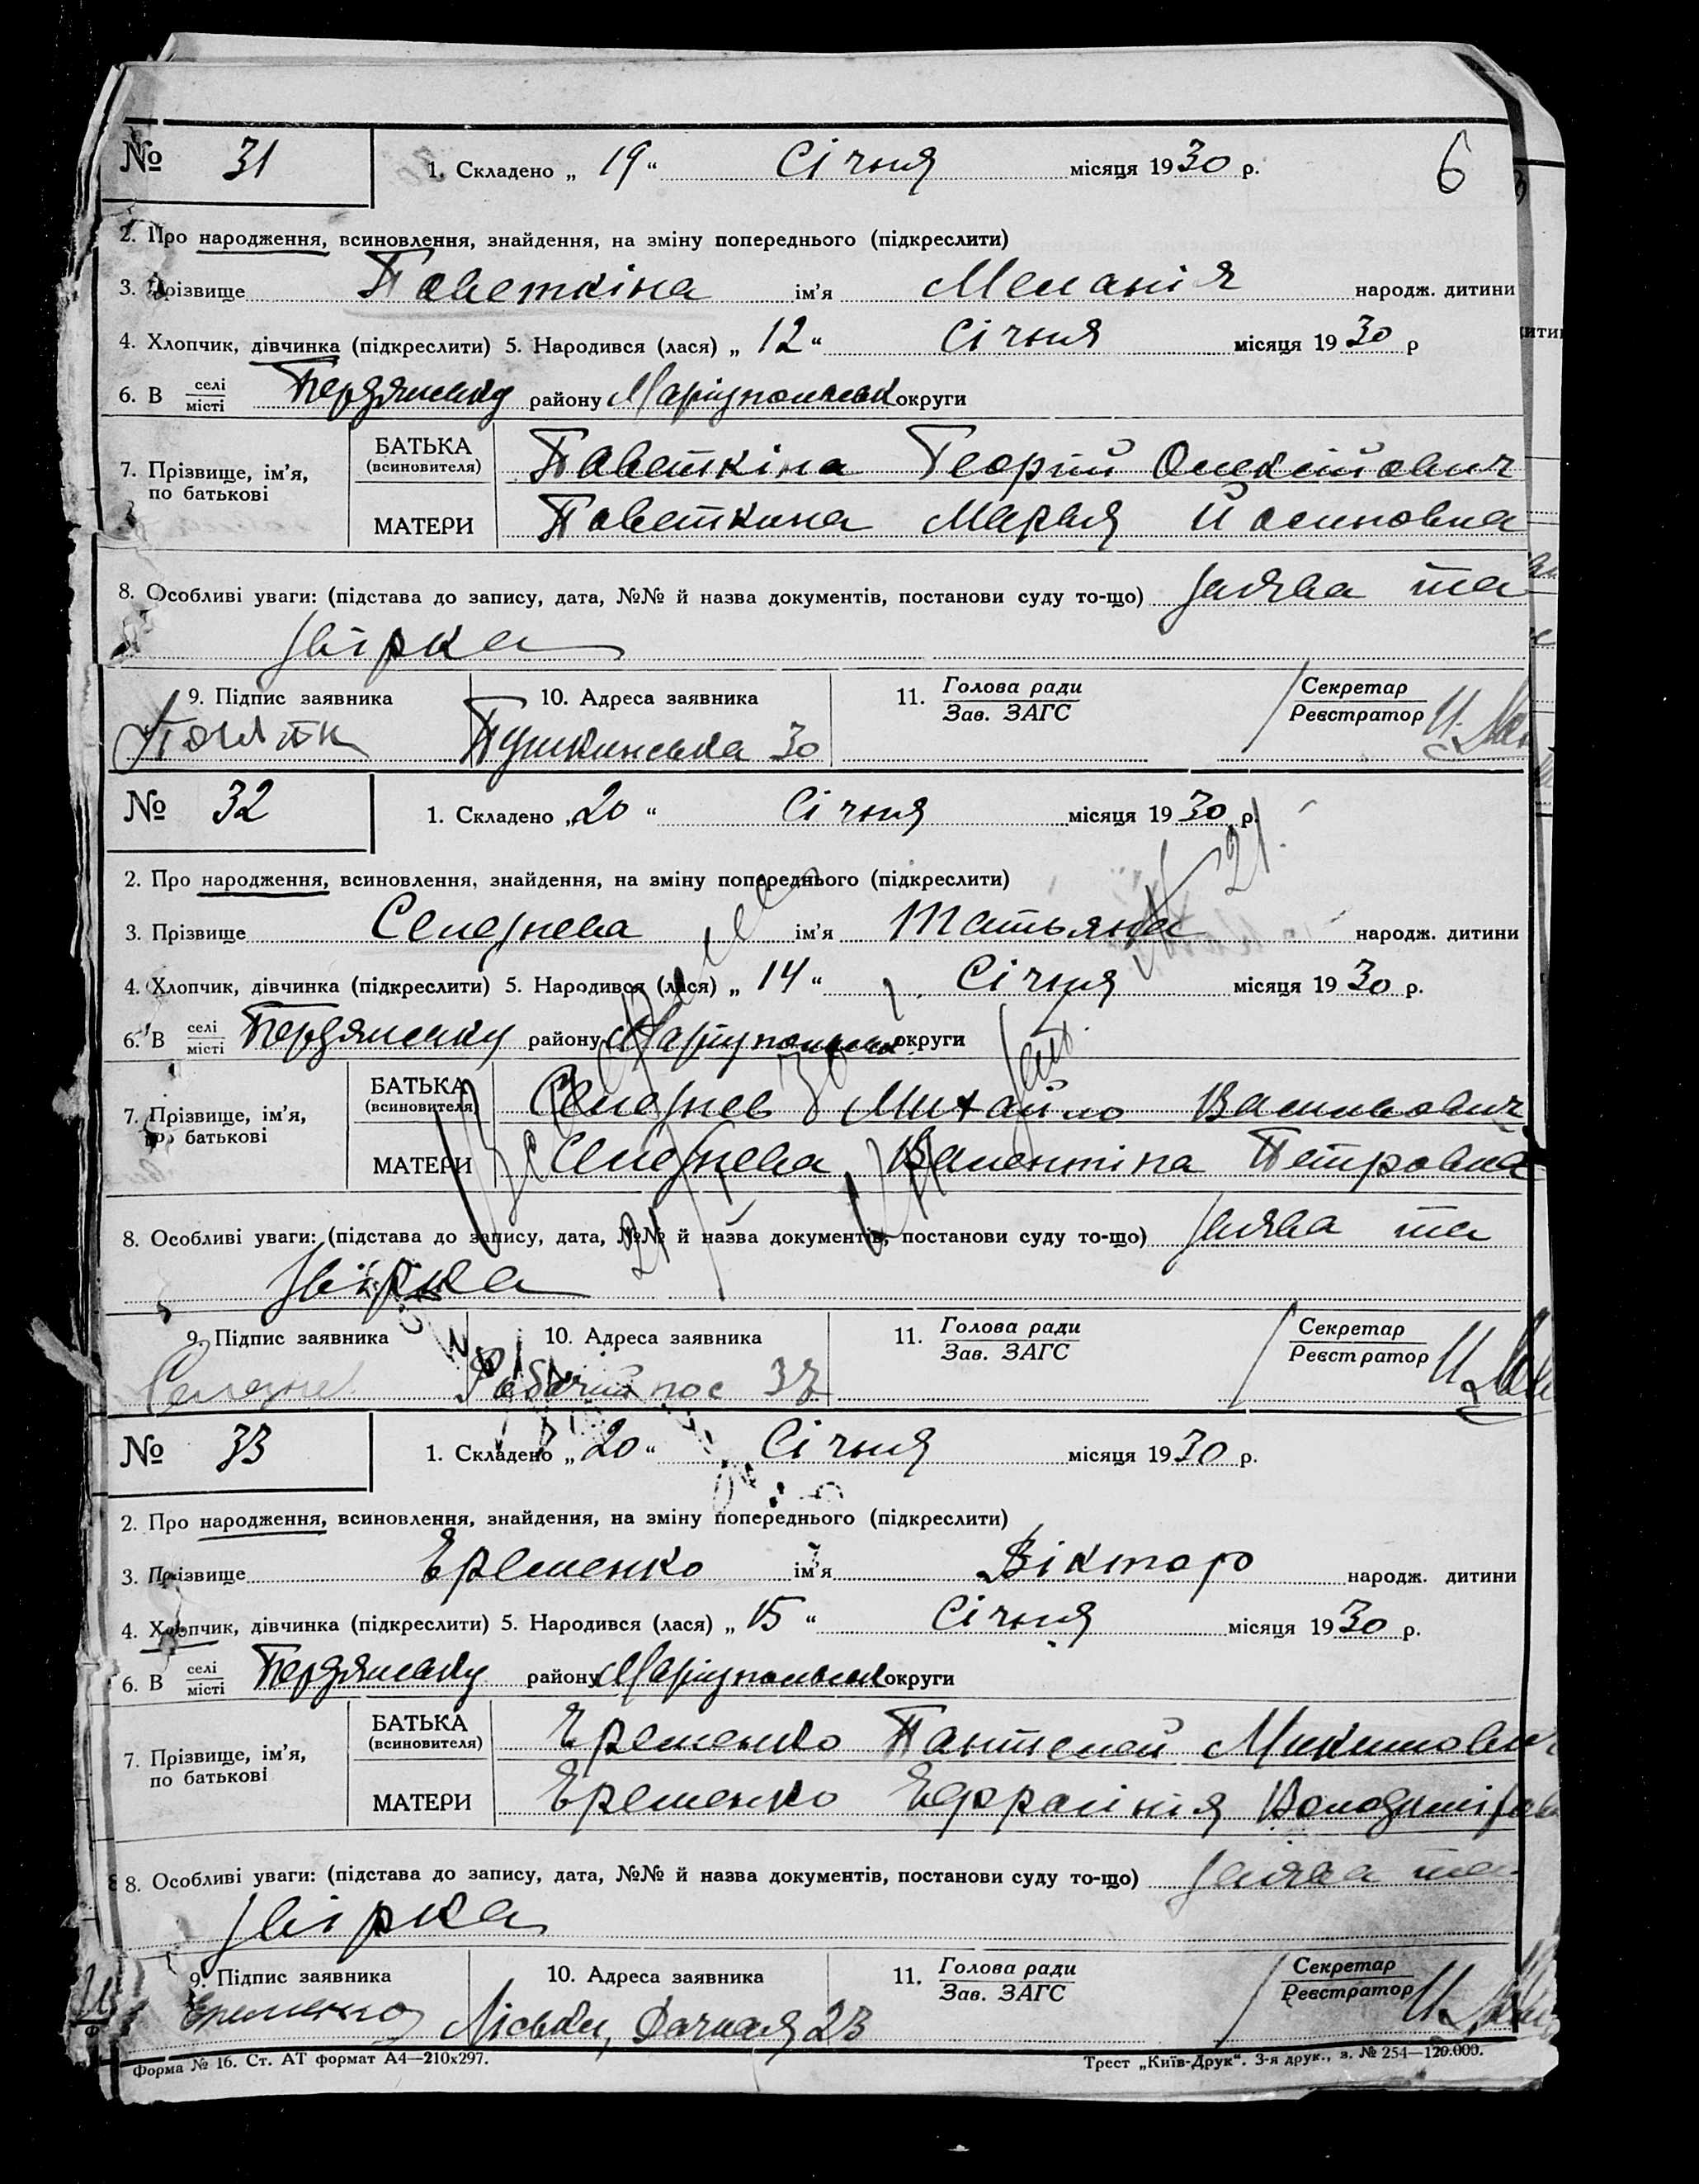 № 31 1. Складено „ 19 “ Січня місяця 1930 р. 6
2. Про народження, всиновлення, знайдення, на зміну попереднього (підкреслити)
3. Прізвище Паветкіна ім'я Меланія народж. дитини
4. Хлопчик, дівчинка (підкреслити) 5. Народився (лася) „ 12 “ Січня місяця 1930 р
6. В селі місті Бердянську району Маріупольськ округи
7. Прізвище, ім'я, по батькові
БАТЬКА (всиновителя) Паветкіна Георгій Олексійович
МАТЕРИ Паветкина Марья Йосиповна
8. Особливі уваги: (підстава до запису, дата, №№ й назва документів, постанови суду то-що) Заява та
звірка
9. Підпис заявника 10. Адреса заявника 11. Голова ради Зав. ЗАГС Секретар Реєстратор
Пушкинська 30
№ 32 1. Складено „ 20 “ Січня місяця 1930 р.
21.
2. Про народження, всиновлення, знайдення, на зміну попереднього (підкреслити)
3. Прізвище Селезнева ім'я Татьяна народж. дитини
4. Хлопчик, дівчинка (підкреслити) 5. Народився (лася) „ 14 “ Січня місяця 1930 р.
6. В селі місті Бердянську району Маріупольськ округи
7. Прізвище, ім'я, по батькові
БАТЬКА (всиновителя) Селезнев Михайло Васильович
МАТЕРИ Селезнева Валентіна Петровна
8. Особливі уваги: (підстава до запису, дата, №№ й назва документів, постанови суду то-що) Заява та
звірка
9. Підпис заявника 10. Адреса заявника 11. Голова ради Зав. ЗАГС Секретар Реєстратор
Рабочий пос
№ 33 1. Складено „ 20 “ Січня місяця 1930 р.
2. Про народження, всиновлення, знайдення, на зміну попереднього (підкреслити)
3. Прізвище Еременко ім'я Віктор народж. дитини
4. Хлопчик, дівчинка (підкреслити) 5. Народився (лася) „ 15 “ Січня місяця 1930 р.
6. В селі місті Бердянську району Маріупольськ округи
7. Прізвище, ім'я, по батькові
БАТЬКА (всиновителя) Еременко Пантелей
МАТЕРИ Еременко
8. Особливі уваги: (підстава до запису, дата, №№ й назва документів, постанови суду то-що) Заява та
звірка
9. Підпис заявника 10. Адреса заявника 11. Голова ради Зав. ЗАГС Секретар Реєстратор
Еременко Ліски, Дачная 23
Форма № 16. Ст. АТ формат А4—210х297. Трест „Київ-Друк“. 3-я друк., з. № 254—120.000.